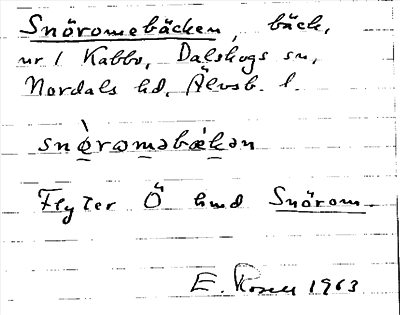 Snöromebäcken, bäck,
nr 1 Kabbo, Dalskogs sn,
Nordals hd, Älvsb. l.
snø̀ramabǽkan
Flyter Ö hmd Snörom.
E. Rosell 1963